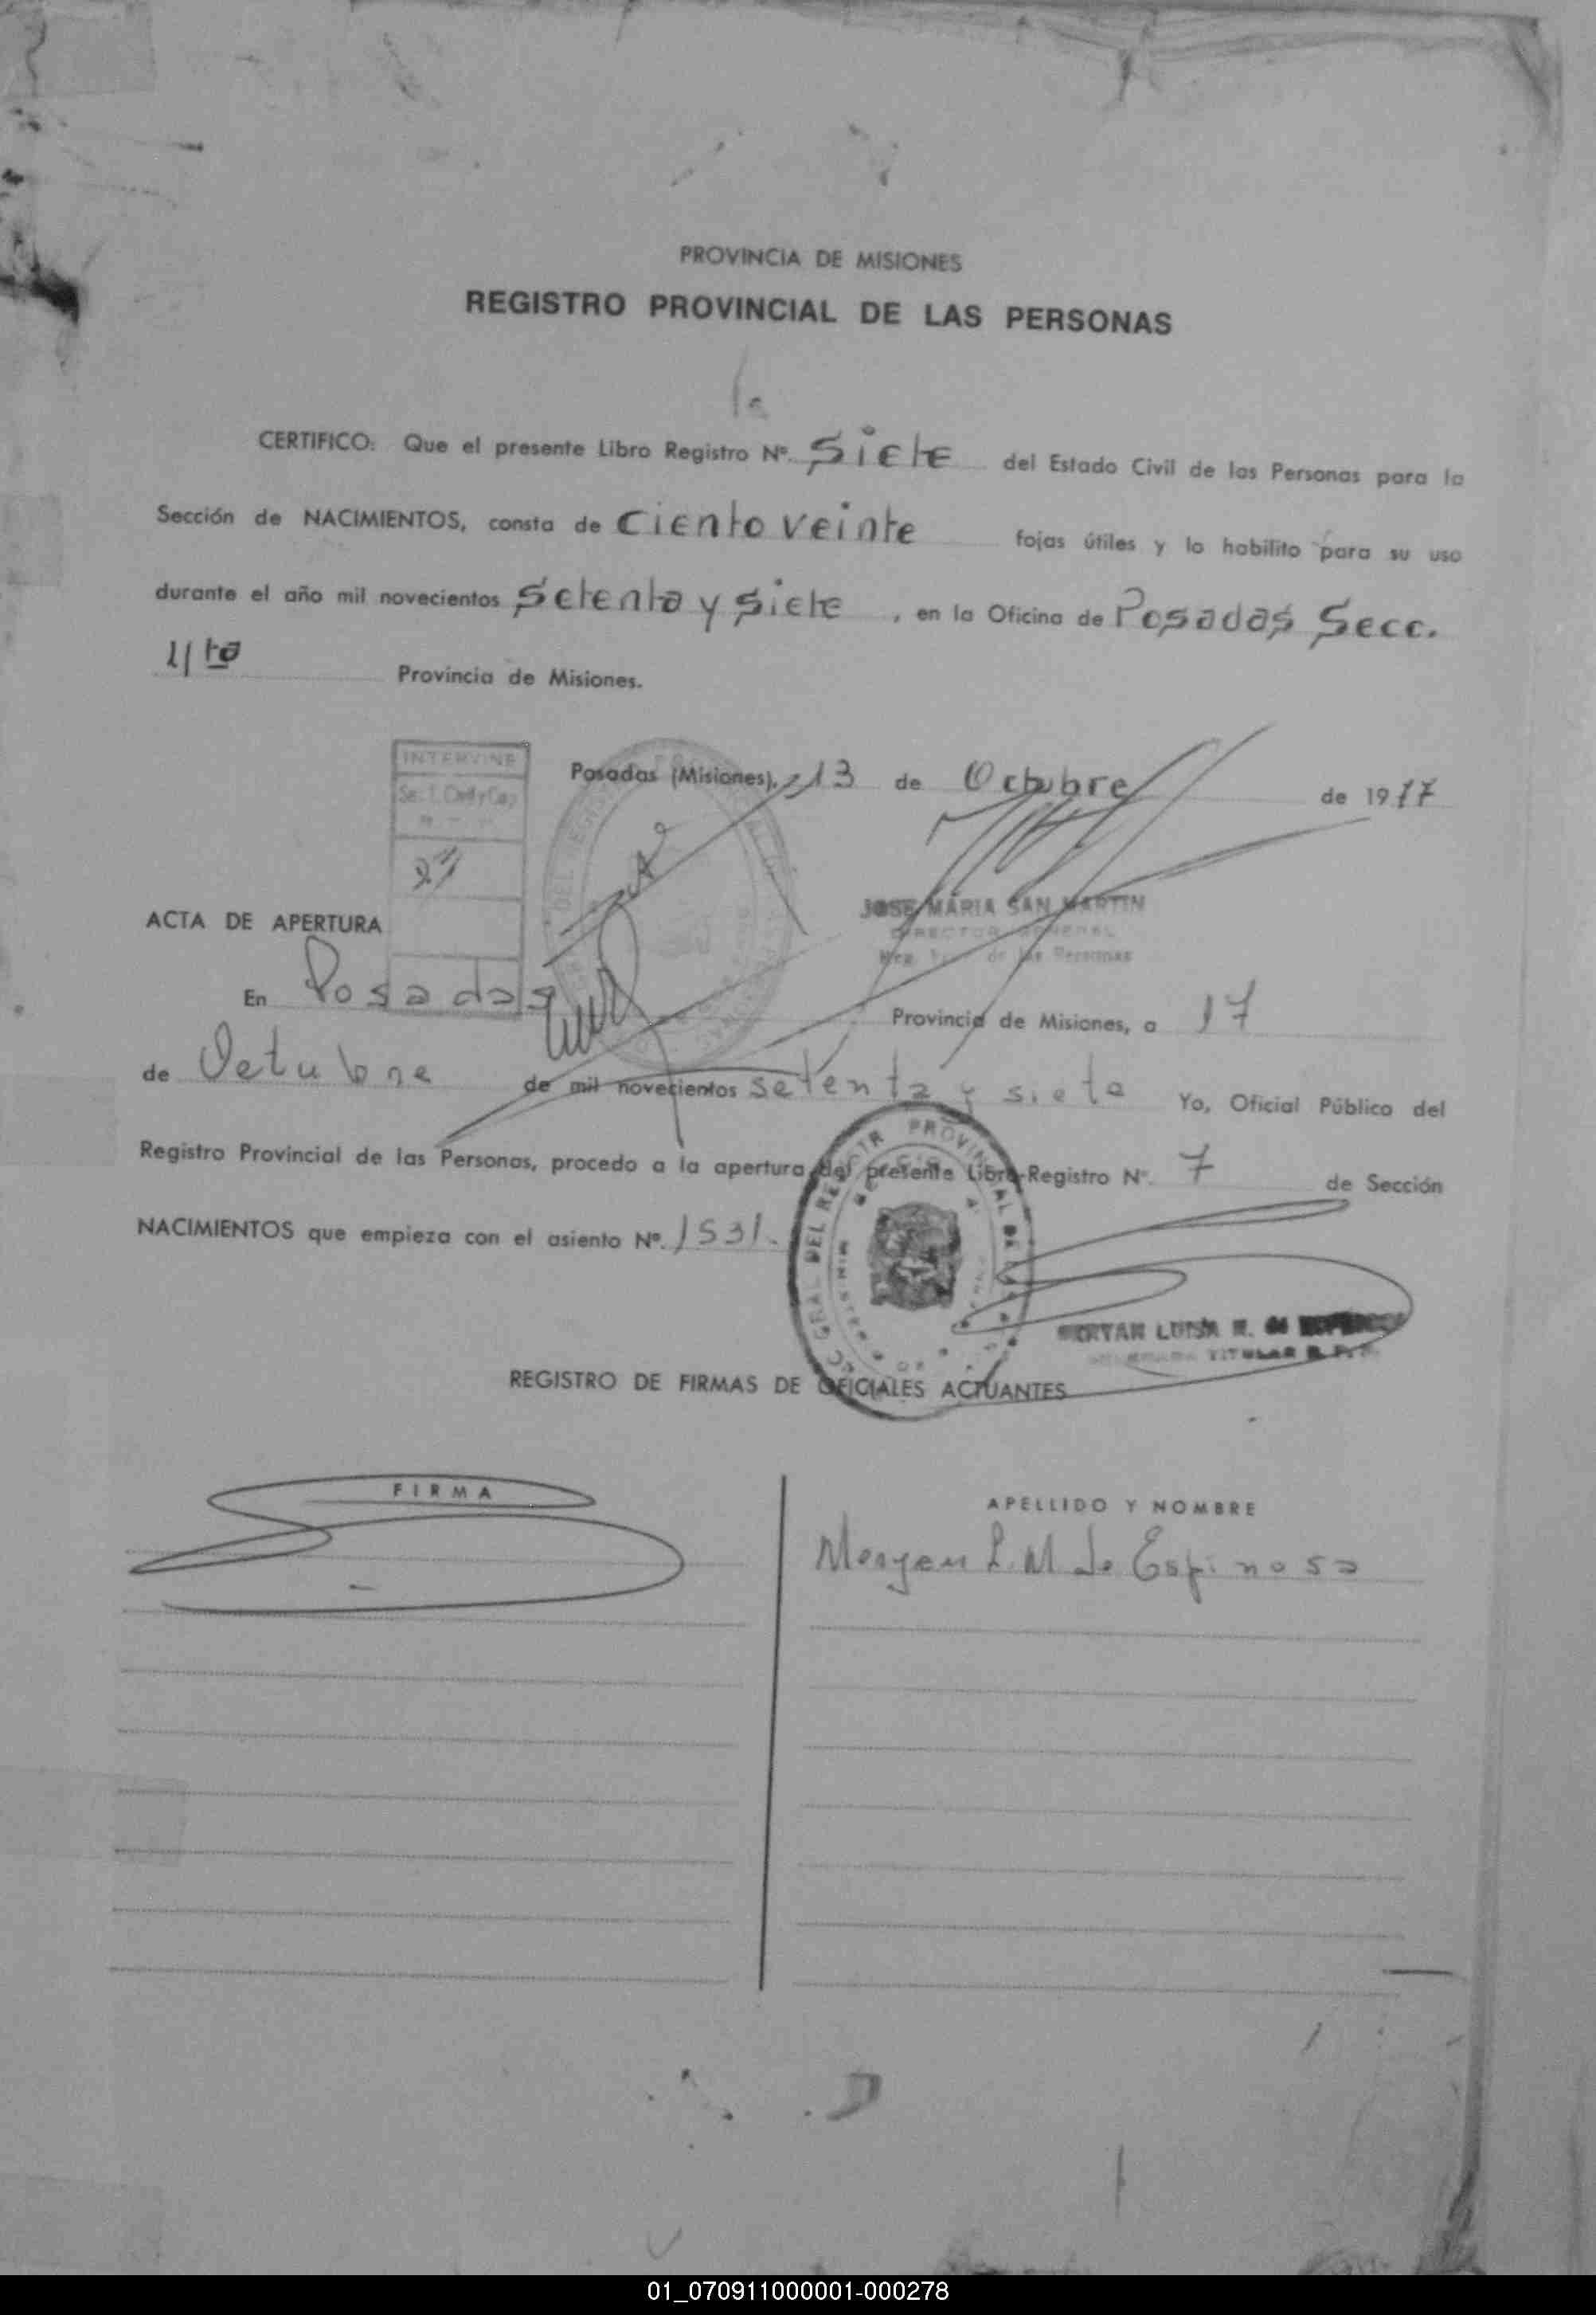 PROVINCIA DE MISIONES
REGISTRO PROVINCIAL DE LAS PERSONAS
CERTIFICO: Que el presente Libro Registro Nº. Siete del Estado Civil de las Personas para la
Sección de NACIMIENTOS, consta de Ciento veinte fojas útiles y lo habilito para su uso
durante el año mil novecientos Setenta y Siete, en la Oficina de Posadas Secc.
4ta Provincia de Misiones.
INTERVINE
Posadas (Misiones), 13 de Octubre de 1977
JOSE MARIA SAN MARTIN
DIRECTOR GENERAL
de las Personas
ACTA DE APERTURA
En Posadas Provincia de Misiones, a 17
de Octubre de mil novecientos setenta y siete Yo, Oficial Público del
Registro Provincial de las Personas, procedo a la apertura del presente Libro-Registro Nº. 7 de Sección
NACIMIENTOS que empieza con el asiento Nº. 1531.
LUISA M. de
TITULAR
REGISTRO DE FIRMAS DE OFICIALES ACTUANTES
FIRMA
APELLIDO Y NOMBRE
L. M. de Espinosa
01_070911000001-000278